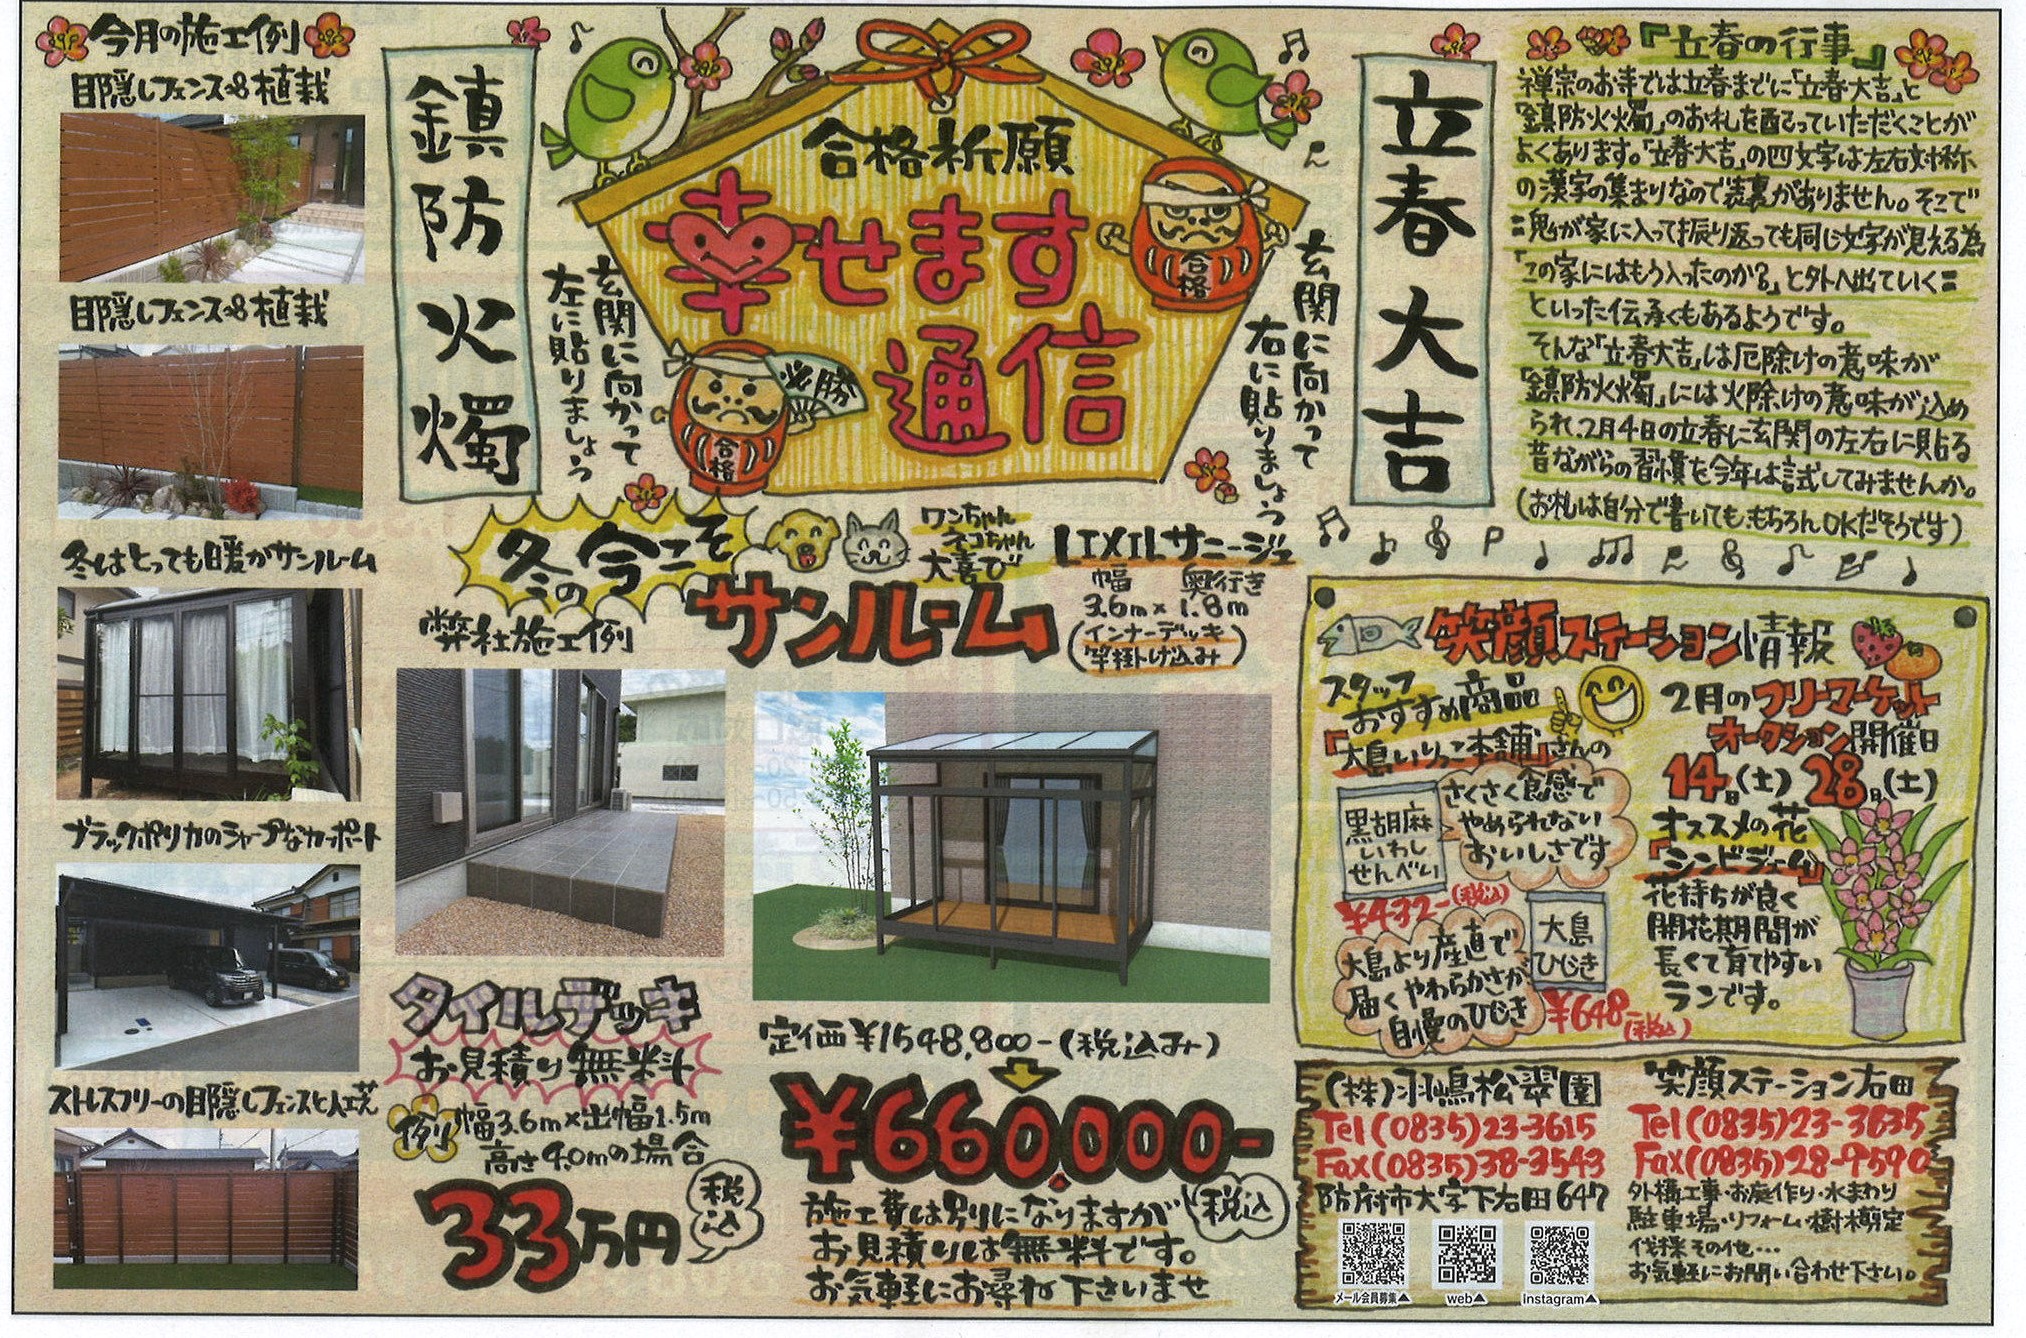 今月の施工例
目隠しフェンス&植栽
目隠しフェンス&植栽
冬はとっても暖かサンルーム
ブラックポリカのシャープなカーポート
ストレスフリーの目隠しフェンスと人工芝
鎮防火燭
玄関に向かって
左に貼りましょう
合格祈願
幸せます
通信
合格
必勝
合格
玄関に向かって
右に貼りましょう
立春大吉
『立春の行事』
禅宗のお寺では立春までに「立春大吉」と
「鎮防火燭」のお札を配っていただくことが
よくあります。「立春大吉」の四文字は左右対称
の漢字の集まりなので表裏がありません。そこで
=鬼が家に入って振り返っても同じ文字が見える為
「この家にはもう入ったのか?」と外へ出ていく=
といった伝承もあるようです。
そんな「立春大吉」は厄除けの意味が
「鎮防火燭」には火除けの意味が込め
られ、2月4日の立春に玄関の左右に貼る
昔ながらの習慣を今年は試してみませんか。
(お札は自分で書いても、もちろんOKだそうです)
冬の今こそ
ワンちゃん
ネコちゃん
大喜び
サンルーム
LIXILサニージュ
幅 奥行き
3.6m×1.8m
(インナーデッキ
竿掛け込み)
弊社施工例
タイルデッキ
お見積り無料
例 幅3.6m×出幅1.5m
高さ4.0mの場合
33万円
税込
定価¥1548,800-(税込み)
¥660,000-
税込
施工費は別になりますが
お見積りは無料です。
お気軽にお尋ね下さいませ
笑顔ステーション情報
スタッフ
おすすめ商品
「大島いりこ本舗」さんの
黒胡麻
いわし
せんべい
さくさく食感で
やめられない
おいしさです
¥432-(税込)
大島
ひじき
大島より産直で
届くやわらかさが
自慢のひじき
¥648(税込)
2月のフリーマーケット
オークション開催日
14日(土)28日(土)
オススメの花
「シンビジューム」
花持ちが良く
開花期間が
長くて育てやすい
ランです。
(株)羽嶋松翠園
Tel(0835)23-3615
Fax(0835)38-3543
防府市大字下右田647
メール会員募集▲
web▲
Instagram▲
笑顔ステーション右田
Tel(0835)23-3635
Fax(0835)28-9590
外構工事・お庭作り・水まわり
駐車場・リフォーム・樹木剪定
伐採その他…
お気軽にお問い合わせ下さい。